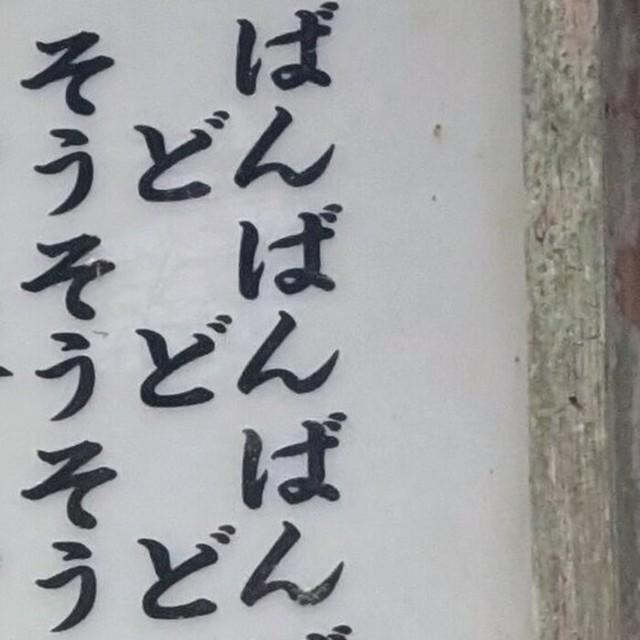 ばんばんばん
どどど
そうそうそう